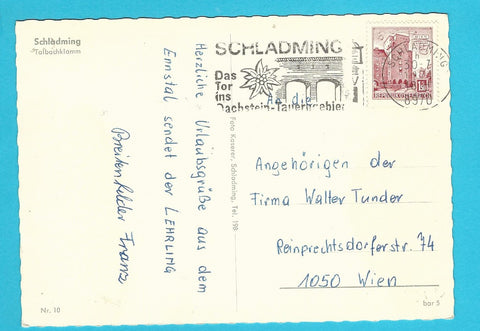 Schladming
Talbachklamm
Herzliche Urlaubsgrüße aus dem
Ennstal sendet der LEHRLING
Breitenfelder Franz
Foto Kaserer, Schladming, Tel. 198
SCHLADMING
Das
Tor
ins
Dachstein-Tauerngebiet
SCHLADMING
8970
REPUBLIK ÖSTERREICH
An die
Angehörigen der
Firma Walter Tunder
Reinprechtsdorferstr. 74
1050 Wien
Nr. 10
bar 5